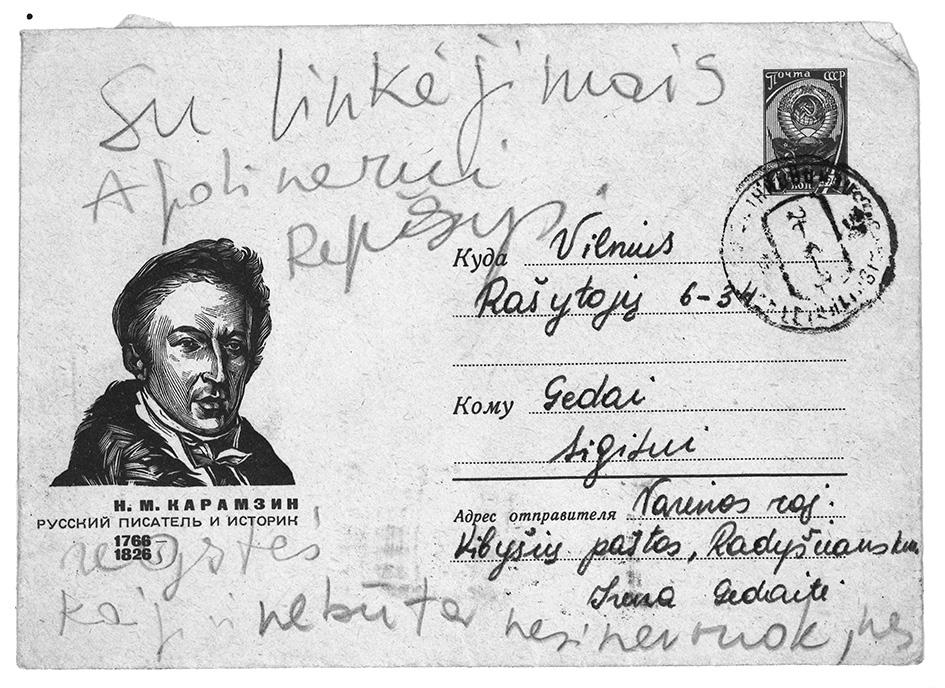 Su linkėjimais
Apolinerui
Почта СССР
Куда Vilnius
Rašytojų 6-34
Кому Gedai
Sigitui
Н. М. КАРАМЗИН
РУССКИЙ ПИСАТЕЛЬ И ИСТОРИК
1766 –
1826
Адрес отправителя Varėnos raj.
Kibyšių paštas, Radyšiaus km.
Irena Gedaitė
nebūtų nesinervuok, nes